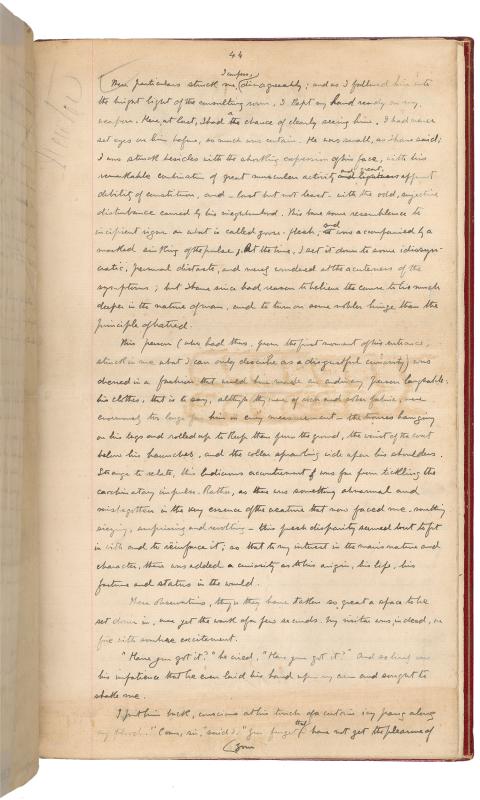 44
I confess,
These particulars struck me, disagreeably; and as I followed him into
the bright light of the consulting room, I kept my hand ready on my
weapon. Here, at last, I had a chance of clearly seeing him, I had never
set eyes on him before, so much was certain. He was small, as I have said;
I was struck besides with the shocking expression of his face, with his
remarkable combination of great muscular activity and great apparent
debility of constitution, and – last but not least – with the odd, subjective
disturbance caused by his neighbourhood. This bore some resemblance to
incipient rigor or what is called goose-flesh; and was accompanied by a
marked sinking of the pulse. At the time, I set it down to some idiosyn-
cratic, personal distaste, and merely wondered at the acuteness of the
symptoms; but I have since had reason to believe the cause to lie much
deeper in the nature of man, and to turn on some nobler hinge than the
principle of hatred.
This person (who had thus, from the first moment of his entrance,
struck in me what I can only describe as a disgustful curiosity) was
dressed in a fashion that would have made an ordinary person laughable:
his clothes, that is to say, although they were of rich and sober fabric, were
enormously too large for him in every measurement – the trousers hanging
on his legs and rolled up to keep them from the ground, the waist of the coat
below his haunches, and the collar sprawling wide upon his shoulders.
Strange to relate, this ludicrous accoutrement was far from tickling the
carcinatory impulse. Rather, as there was something abnormal and
misbegotten in the very essence of the creature that now faced me – something
seizing, surprising and revolting – this fresh disparity seemed but to fit
in with and to reinforce it; so that to my interest in the man's nature and
character, there was added a curiosity as to his origin, his life, his
fortune and status in the world.
These observations, though they have taken so great a space to be
set down in, were yet the work of a few seconds. My visitor was, indeed, on
fire with sombre excitement.
"Have you got it?" he cried, "Have you got it?" And so lively was
his impatience that he even laid his hand upon my arm and sought to
shake me.
I put him back, conscious at his touch of a certain icy pang along
my blood. "Come, sir," said I. "You forget that I have not yet the pleasure of
(your